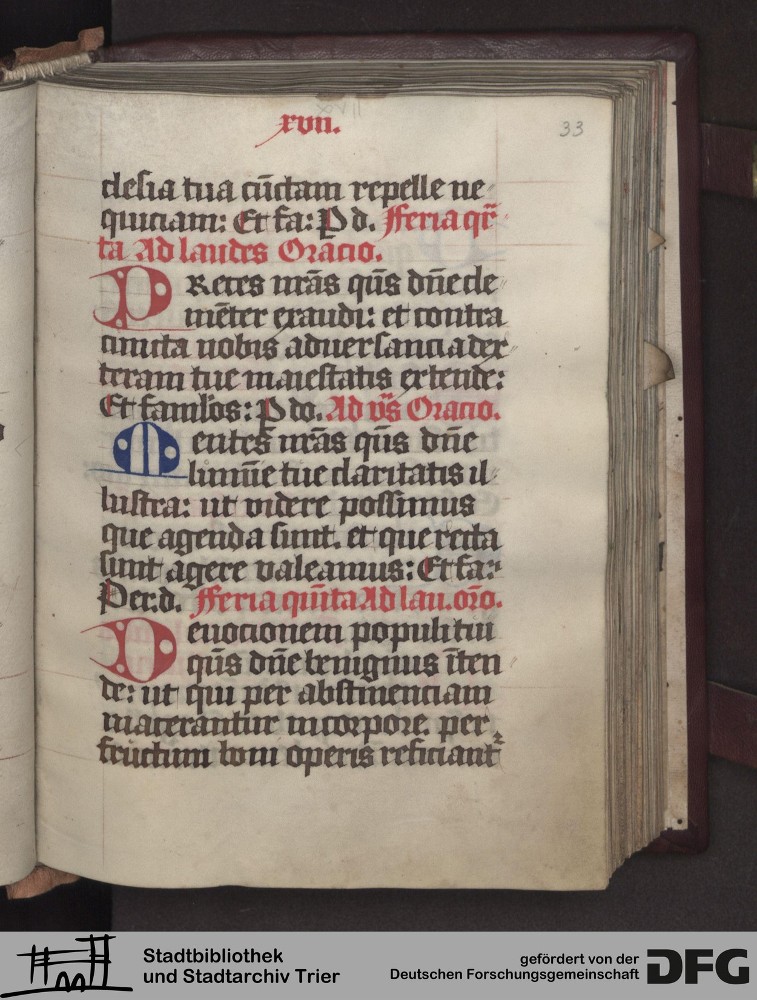 xvii.
33
clesia tua cūctam repelle ne
quiciam: Et fa: P d. Fferia qr̄
ta Ad laudes Oracio.
PReces nr̄as q̄us dn̄e cle
mēter exaudi: et contra
cuncta nobis aduersancia dex
teram tue maiestatis extende:
Et famlōs: P do. Ad vs̄ Oracio.
Mentes nr̄as q̄us dn̄e
lumīe tue claritatis il
lustra: ut videre possimus
que agenda sunt. et que recta
sunt agere valeamus: Et fa:
Per. d. Fferia quīta Ad lau. oro.
Deuocionem populi tui
q̄us dn̄e benignus īten
de: ut qui per abstinenciam
macerantur in corpore. per
fructum boni operis reficiant᷑
Stadtbibliothek
und Stadtarchiv Trier
gefördert von der
Deutschen Forschungsgemeinschaft
DFG